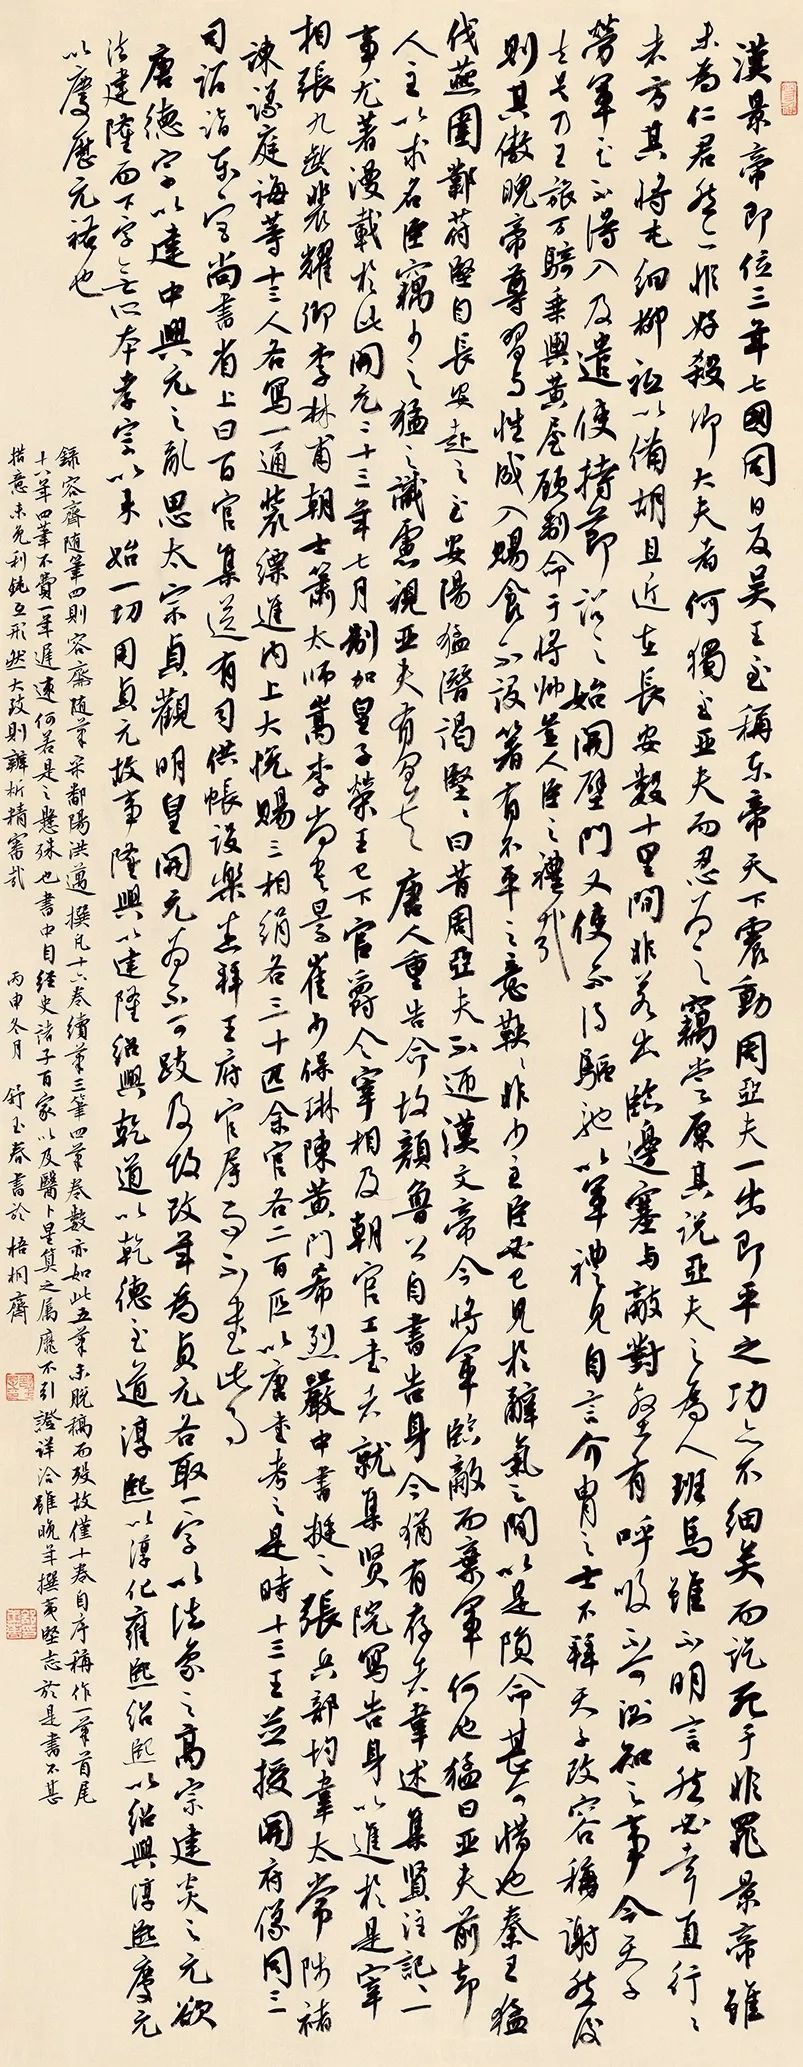 漢景帝即位三年七國同日反吳王至稱東帝天下震動周亞夫一出即平之功亦不細矣而訖死于非罪景帝雖
未為仁君然亦非好殺卿大夫者何獨至亞夫而忍為之竊嘗原其說亞夫之為人班馬雖不明言然必幸直行行
者方其將屯細柳祇以備胡且近在長安數十里間非若出臨邊塞與敵對壘有呼吸不可測知之事今天子
勞軍至不得入及遣使持節詔之始開壁門又使不得驅馳以軍禮見自言介冑之士不拜天子改容稱謝然後
去是乃王旅萬騎乘輿黃屋顧制命于將帥豈人臣之禮哉
則其傲睨帝尊習與性成入賜食不設箸有不平之意鞅鞅非少主臣必已見於辭氣之間以是隕命甚可惜也秦王猛
伐燕圍鄴苻堅自長安赴之至安陽猛潛謁堅堅曰昔周亞夫不迎漢文帝今將軍臨敵而棄軍何也猛曰亞夫前卻
人主以求名臣竊少之猛之識慮視亞夫有間矣 唐人重告命故顏魯公自書告身今猶有存者韋述集賢注記一
事尤著漫載於此開元二十三年七月制加皇子榮王已下官爵令宰相及朝官工書者就集賢院寫告身以進於是宰
相張九齡裴耀卿李林甫朝士蕭太師嵩李尚書暠崔少保琳陳黃門希烈嚴中書挺之張兵部均韋太常陟褚
諫議庭誨等十三人各寫一通裝縹進內上大悅賜三相絹各三十匹余官各二百匹以唐書考之是時十三王並授開府儀同三
司詔詣東宮尚書省上日百官集送有司供帳設樂悉拜王府官屬而不書此事
唐德宗以建中興元之亂思太宗貞觀明皇開元為不可跂及故改年為貞元各取一字以法象之高宗建炎之元欲
法建隆而下字無所本孝宗以來始一切用貞元故事隆興以建隆紹興乾道以乾德至道淳熙以淳化雍熙紹熙以紹興淳熙慶元
以慶曆元祐也
錄容齋隨筆四則容齋隨筆宋鄱陽洪邁撰凡十六卷續筆三筆四筆卷數亦如此五筆未脫稿而歿故僅十卷自序稱作一筆首尾
十八年四筆不費一年遲速何若是之懸殊也書中自經史諸子百家以及醫卜星算之屬靡不引證詳洽雖晚年撰夷堅志於是書不甚
措意未免利鈍互形然大致則辨析精審哉 丙申冬月 舒玉春書於梧桐齋